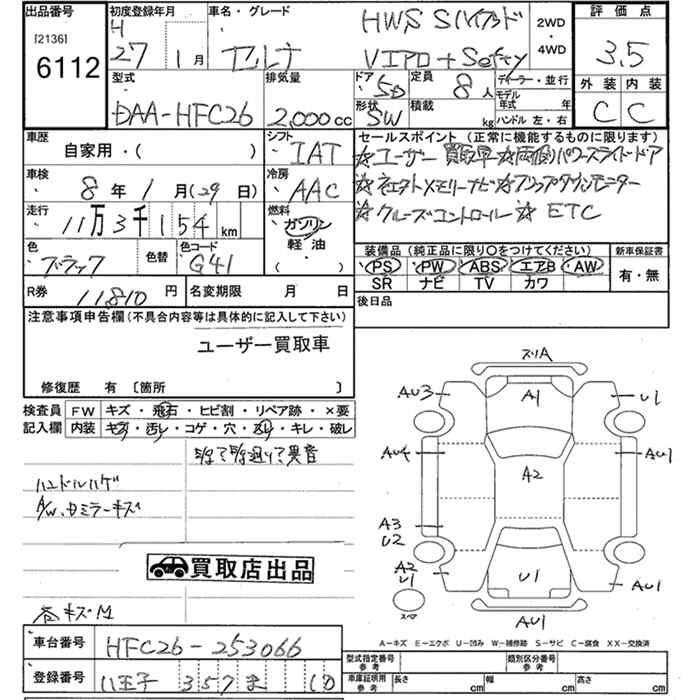 出品番号
[2136]
6112
初度登録年月
H
27 1月
車名・グレード
セレナ
HWS Sハイブリッド
VIPO + Safty
2WD
・
4WD
評価点
3.5
外装 内装
C C
型式
DAA-HFC26
排気量
2,000cc
ドア
5D
定員
8人
ディーラー・並行
モデル
年式 年
形状
SW
積載
kg
ハンドル 左・右
車歴
自家用・( )
シフト
IAT
セールスポイント (正常に機能するものに限ります)
☆ユーザー買取車☆両側パワースライドドア
☆純正メモリーナビ☆フリップダウンモニター
☆クルーズコントロール ☆ ETC
車検
8年1月(29日)
冷房
AAC
走行
11万3千154km
燃料
ガソリン
軽油
・
( )
色
ブラック
色替
色コード
G41
装備品 (純正品に限り○をつけてください)
PS PW ABS エアB AW
SR ナビ TV カワ
新車保証書
有・無
R券
11,810円
名変期限 月 日
後日品
注意事項申告欄 (不具合内容等は具体的に記入して下さい)
ユーザー買取車
修復歴 有 〔箇所 〕
検査員
記入欄
FW キズ・飛石・ヒビ割・リペア跡・×要
内装 キズ・汚レ・コゲ・穴・スレ・キレ・破レ
ハンドルハゲ
A/W、ミラーキズ
買取店出品
キズM
車台番号
HFC26-253066
登録番号
八王子 357 ま
スリA
AU3 A1 U1
AU4 A2 AU1
A3
U2
A2
U1 U1 AU1
スペア
AU1
A-キズ E-エクボ U-凹み W-補修跡 S-サビ C-腐食 XX-交換済
型式指定番号
参考
類別区分番号
参考
車庫証明用
参考
長さ cm 幅 cm 高さ cm